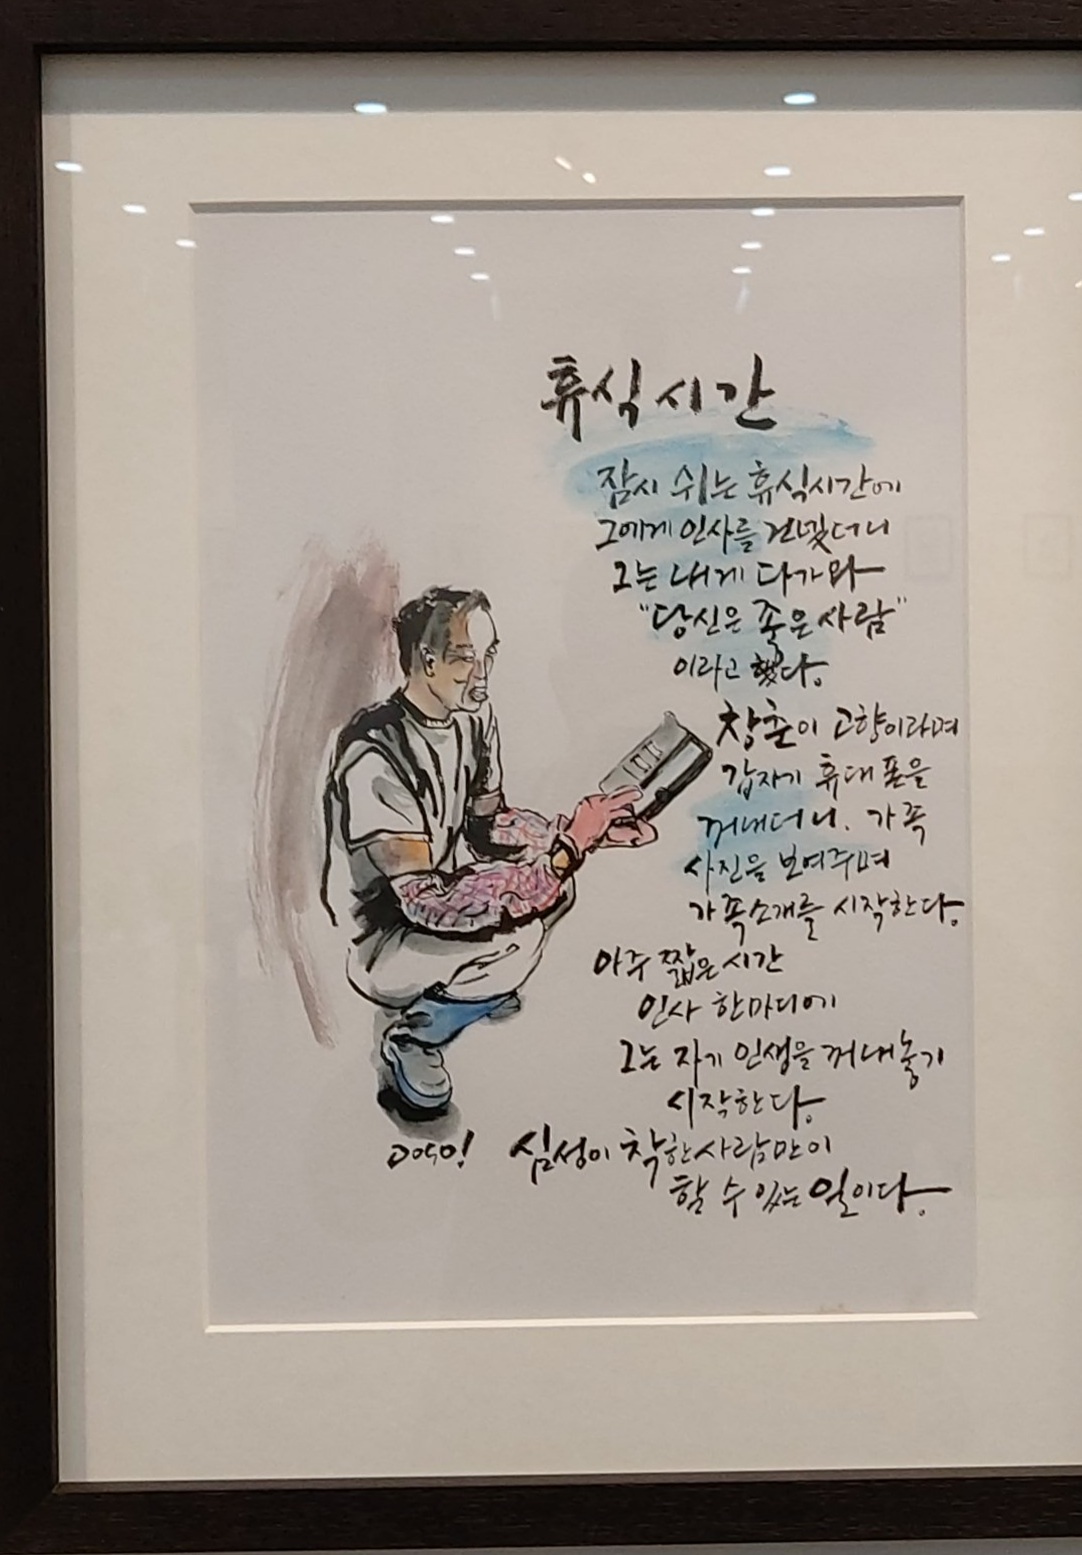 휴식시간
잠시 쉬는 휴식시간에
그에게 인사를 건넸더니
그는 내게 다가와
"당신은 좋은 사람"
이라고 했다.
창춘이 고향이라며
갑자기 휴대폰을
꺼내더니. 가족
사진을 보여주며
가족소개를 시작한다.
아주 짧은 시간
인사 한마디에
그는 자기 인생을 꺼내놓기
시작한다.
심성이 착한사람만이
할 수 있는 일이다.